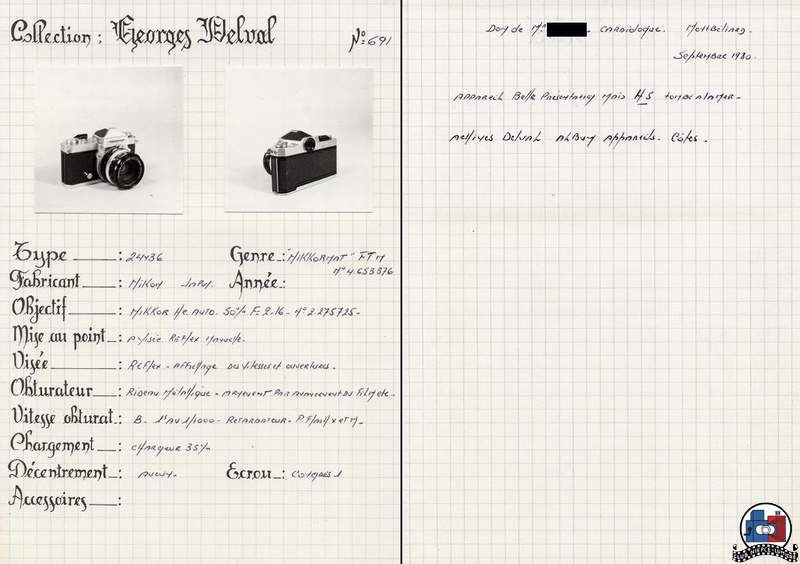 Collection : Georges Delval Nº 691
Type : 24x36 Genre : "NIKKORMAT" FTN
Nº 4.653376
Fabricant : NiKON JAPN. Année :
Objectif : NiKKOR H.C AUTO. 50% F. 2-16 - Nº 2.275725 -
Mise au point : A visée REflex Manuelle -
Visée : REflex - Affichage des Vitesses et ouvertures -
Obturateur : Rideau Métallique - ARMEMENT PAR avancement du Film etc -
Vitesse obturat : B - 1" AU 1/1000 - RETARDATEUR -
Chargement : chargeur 35%
Décentrement : Aucun - Ecrou :
Accessoires :
Don de Mr CARdiologue. MontBéliard.
Septembre 1980.
APPAREIL Belle Présentation Mais H.S
Archives Delval ALBum Appareils. Côtes.